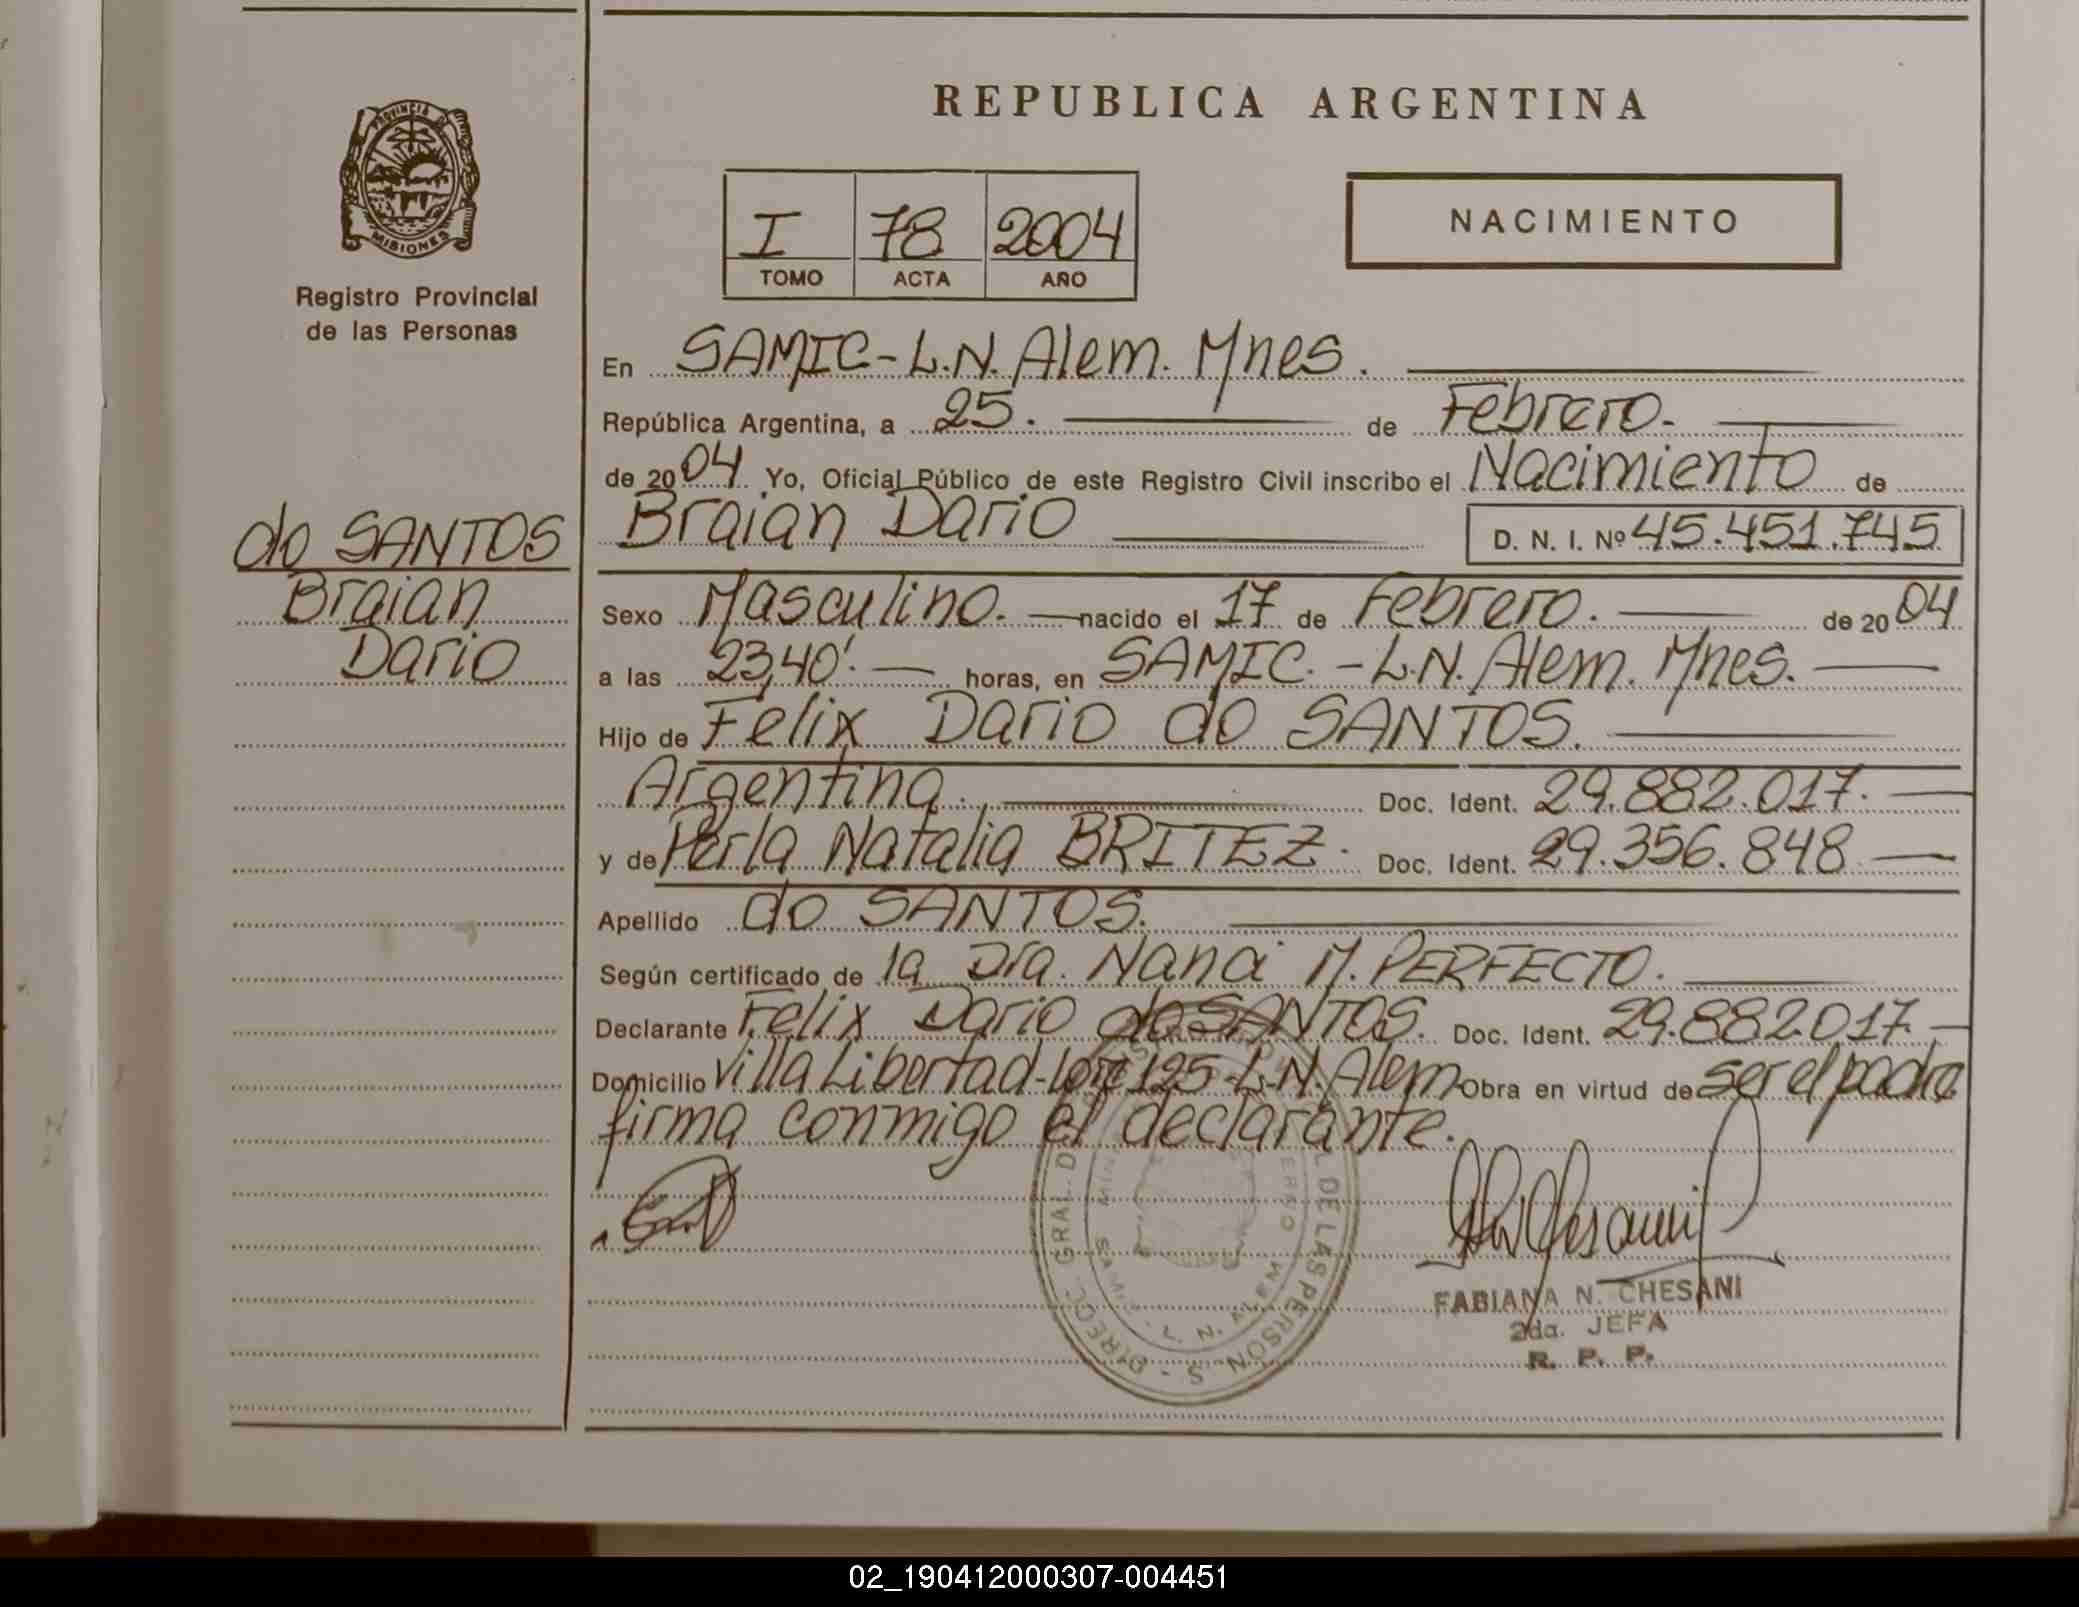 REPUBLICA ARGENTINA
PROVINCIA DE
MISIONES
Registro Provincial
de las Personas
I 78 2004
TOMO ACTA AÑO
NACIMIENTO
En SAMIC-L.N. Alem. Mnes.
República Argentina, a 25. de Febrero.
de 2004 Yo, Oficial Público de este Registro Civil inscribo el Nacimiento de
Braian Dario D. N. I. Nº 45.451.745
do SANTOS
Braian
Dario
Sexo Masculino. nacido el 17 de Febrero. de 2004
a las 23,40'. horas, en SAMIC.-L.N. Alem. Mnes.
Hijo de Felix Dario do SANTOS.
Argentina. Doc. Ident. 29.882.017.
y de Perla Natalia BRITEZ. Doc. Ident. 29.356.848
Apellido do SANTOS.
Según certificado de la Dra. Nanci M. PERFECTO.
Declarante Felix Dario do SANTOS. Doc. Ident. 29.882.017.
Domicilio Villa Libertad-Lote 125-L.N. Alem Obra en virtud de ser el padre
firma conmigo el declarante.
DIRECC. GRAL. DE LAS PERSONAS
SAMIC - L. N. ALEM
FABIANA N. CHESANI
2da. JEFA
R. P. P.
02_190412000307-004451